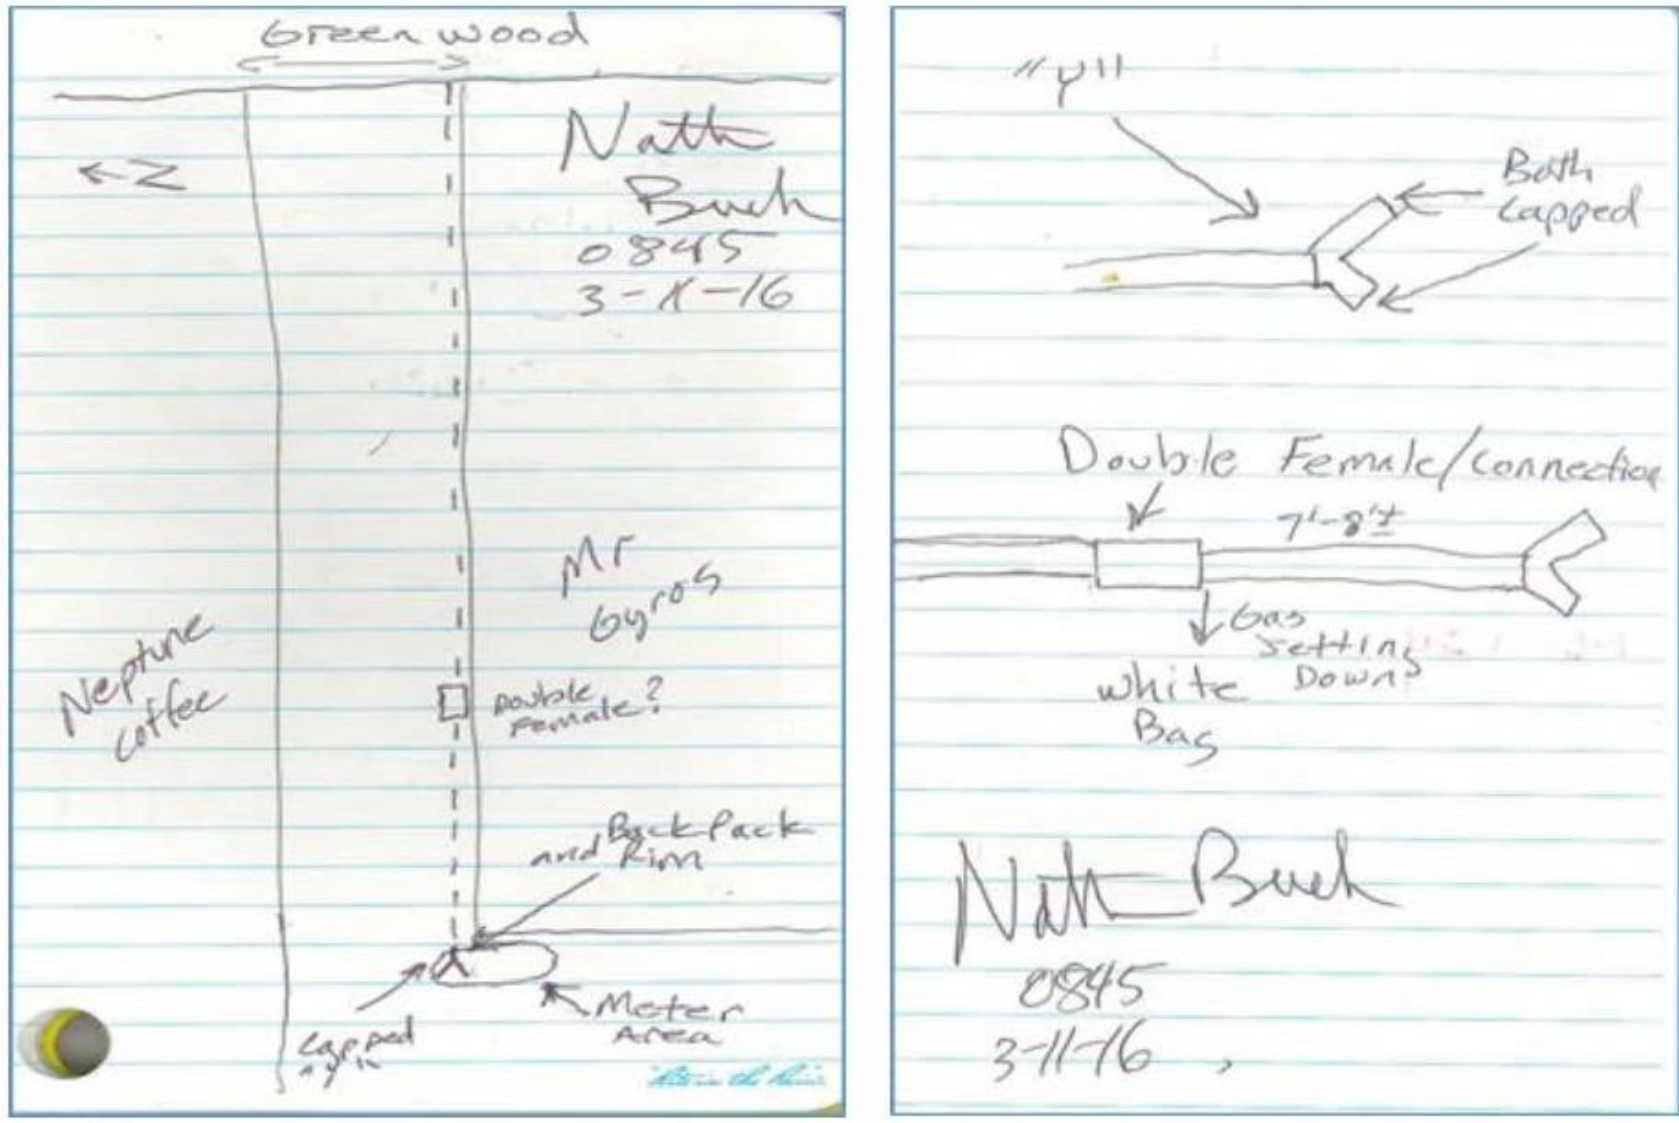 Greenwood
←Z
Nath
Buch
0845
3-11-16
Mr
Gyros
Neptune
Coffee
Double
Female?
Back Pack
and Rim
Meter
Area
Capped
"y"
"Rite in the Rain"
"y"
Both
Capped
Double Female/Connection
7'-8'±
Gas
Setting
Down
White
Bag
Nath Buch
0845
3-11-16